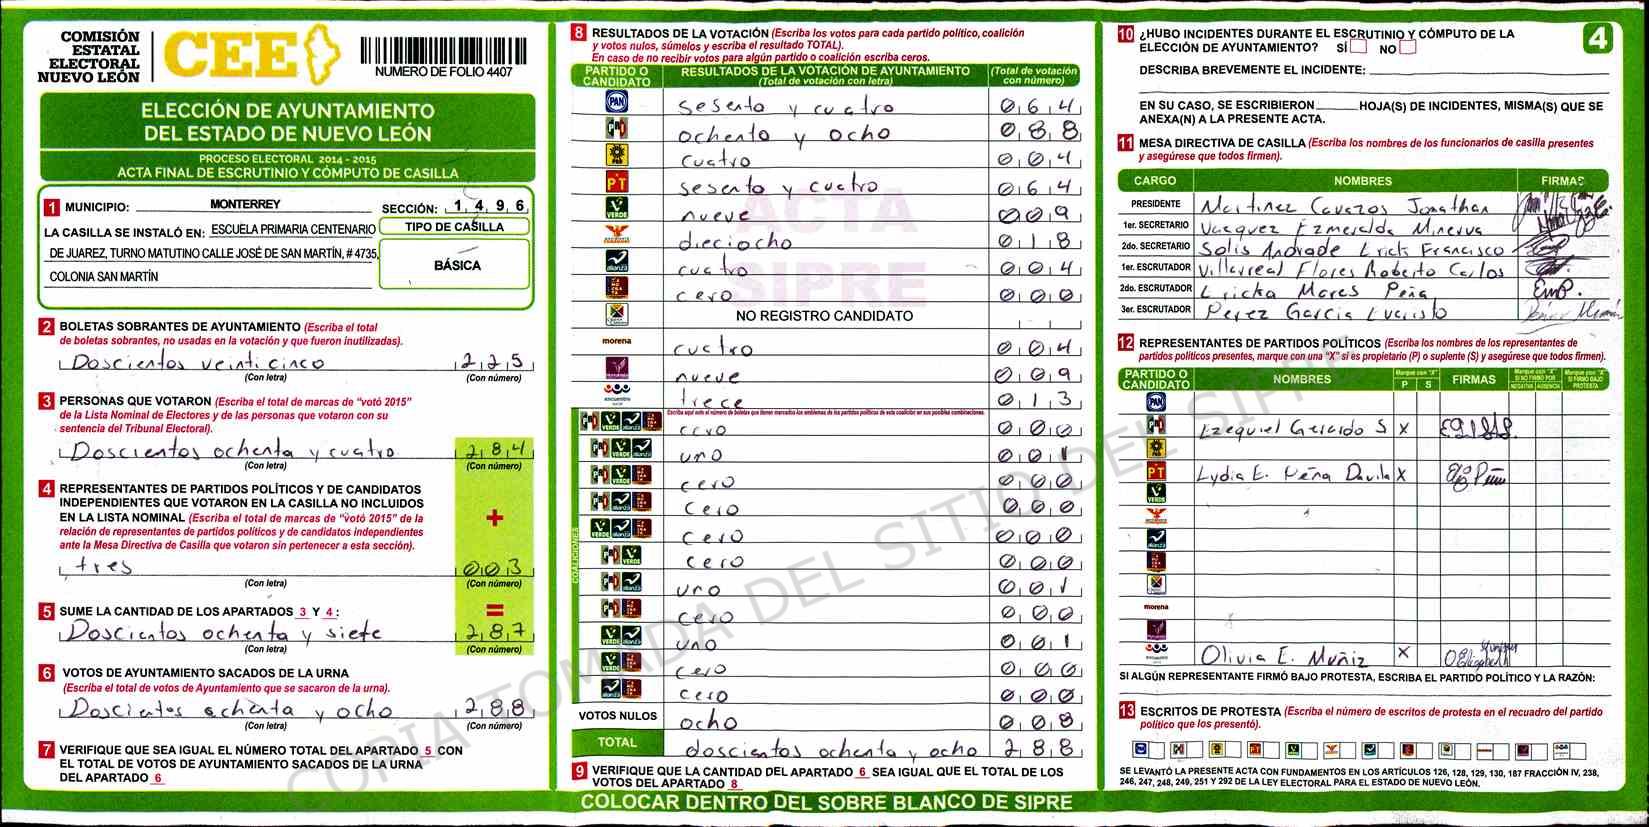 COMISIÓN
ESTATAL
ELECTORAL
NUEVO LEÓN
CEE
NUMERO DE FOLIO 4407
ELECCIÓN DE AYUNTAMIENTO
DEL ESTADO DE NUEVO LEÓN
PROCESO ELECTORAL 2014 - 2015
ACTA FINAL DE ESCRUTINIO Y CÓMPUTO DE CASILLA
1 MUNICIPIO: MONTERREY SECCIÓN: 1 4 9 6
LA CASILLA SE INSTALÓ EN: ESCUELA PRIMARIA CENTENARIO
DE JUAREZ, TURNO MATUTINO CALLE JOSÉ DE SAN MARTÍN, # 4735,
COLONIA SAN MARTÍN
TIPO DE CASILLA
BÁSICA
2 BOLETAS SOBRANTES DE AYUNTAMIENTO (Escriba el total
de boletas sobrantes, no usadas en la votación y que fueron inutilizadas).
Doscientos veinti cinco 2 2 5
(Con letra) (Con número)
3 PERSONAS QUE VOTARON (Escriba el total de marcas de "votó 2015"
de la Lista Nominal de Electores y de las personas que votaron con su
sentencia del Tribunal Electoral).
Doscientos ochenta y cuatro 2 8 4
(Con letra) (Con número)
4 REPRESENTANTES DE PARTIDOS POLÍTICOS Y DE CANDIDATOS
INDEPENDIENTES QUE VOTARON EN LA CASILLA NO INCLUIDOS
EN LA LISTA NOMINAL (Escriba el total de marcas de "votó 2015" de la
relación de representantes de partidos políticos y de candidatos independientes
ante la Mesa Directiva de Casilla que votaron sin pertenecer a esta sección).
+
tres 0 0 3
(Con letra) (Con número)
5 SUME LA CANTIDAD DE LOS APARTADOS 3 Y 4 : =
Doscientos ochenta y siete 2 8 7
(Con letra) (Con número)
6 VOTOS DE AYUNTAMIENTO SACADOS DE LA URNA
(Escriba el total de votos de Ayuntamiento que se sacaron de la urna).
Doscientos ochenta y ocho 2 8 8
(Con letra) (Con número)
7 VERIFIQUE QUE SEA IGUAL EL NÚMERO TOTAL DEL APARTADO 5 CON
EL TOTAL DE VOTOS DE AYUNTAMIENTO SACADOS DE LA URNA
DEL APARTADO 6
8 RESULTADOS DE LA VOTACIÓN (Escriba los votos para cada partido político, coalición
y votos nulos, súmelos y escriba el resultado TOTAL).
En caso de no recibir votos para algún partido o coalición escriba ceros.
PARTIDO O CANDIDATO RESULTADOS DE LA VOTACIÓN DE AYUNTAMIENTO (Total de votación con letra) (Total de votación con número)
PAN sesenta y cuatro 0 6 4
PRI ochenta y ocho 0 8 8
PRD cuatro 0 0 4
PT sesenta y cuatro 0 6 4
VERDE nueve 0 0 9
dieciocho 0 1 8
alianza cuatro 0 0 4
cero 0 0 0
NO REGISTRO CANDIDATO
morena cuatro 0 0 4
nueve 0 0 9
encuentro trece 0 1 3
Escriba aquí solo el número de boletas que tienen marcados los emblemas de los partidos políticos de esta coalición en sus posibles combinaciones.
COALICIONES
PRI VERDE alianza cero 0 0 0
PRI VERDE alianza uno 0 0 1
PRI VERDE cero 0 0 0
PRI alianza cero 0 0 0
VERDE alianza cero 0 0 0
PRI VERDE cero 0 0 0
PRI alianza uno 0 0 1
PRI cero 0 0 0
VERDE alianza uno 0 0 1
VERDE cero 0 0 0
alianza cero 0 0 0
VOTOS NULOS ocho 0 0 8
TOTAL doscientos ochenta y ocho 2 8 8
9 VERIFIQUE QUE LA CANTIDAD DEL APARTADO 6 SEA IGUAL QUE EL TOTAL DE LOS
VOTOS DEL APARTADO 8
COLOCAR DENTRO DEL SOBRE BLANCO DE SIPRE
ACTA
SIPRE
COPIA TOMADA DEL SITIO DEL SIPRE
4
10 ¿HUBO INCIDENTES DURANTE EL ESCRUTINIO Y CÓMPUTO DE LA
ELECCIÓN DE AYUNTAMIENTO? SÍ NO
DESCRIBA BREVEMENTE EL INCIDENTE:
EN SU CASO, SE ESCRIBIERON HOJA(S) DE INCIDENTES, MISMA(S) QUE SE
ANEXA(N) A LA PRESENTE ACTA.
11 MESA DIRECTIVA DE CASILLA (Escriba los nombres de los funcionarios de casilla presentes
y asegúrese que todos firmen).
CARGO NOMBRES FIRMAS
PRESIDENTE Martinez Cavazos Jonathan
1er. SECRETARIO Vazquez Ezmeralda Minerva
2do. SECRETARIO Solis Andrade Erick Francisco
1er. ESCRUTADOR Villarreal Flores Roberto Carlos
2do. ESCRUTADOR Ericka Mares Peña EMP.
3er. ESCRUTADOR Perez Garcia Evaristo
12 REPRESENTANTES DE PARTIDOS POLÍTICOS (Escriba los nombres de los representantes de
partidos políticos presentes, marque con una "X" si es propietario (P) o suplente (S) y asegúrese que todos firmen).
PARTIDO O CANDIDATO NOMBRES Marque con "X" P S FIRMAS Marque con "X" SI NO FIRMÓ POR NEGATIVA AUSENCIA Marque con "X" SI FIRMÓ BAJO PROTESTA
PAN
PRI Ezequiel Gerardo S X
PRD
PT Lydia E. Peña Davila X
VERDE
alianza
morena
encuentro Olivia E. Muñiz X
SI ALGÚN REPRESENTANTE FIRMÓ BAJO PROTESTA, ESCRIBA EL PARTIDO POLÍTICO Y LA RAZÓN:
13 ESCRITOS DE PROTESTA (Escriba el número de escritos de protesta en el recuadro del partido
político que los presentó).
SE LEVANTÓ LA PRESENTE ACTA CON FUNDAMENTOS EN LOS ARTÍCULOS 126, 128, 129, 130, 187 FRACCIÓN IV, 238,
246, 247, 248, 249, 251 Y 292 DE LA LEY ELECTORAL PARA EL ESTADO DE NUEVO LEÓN.